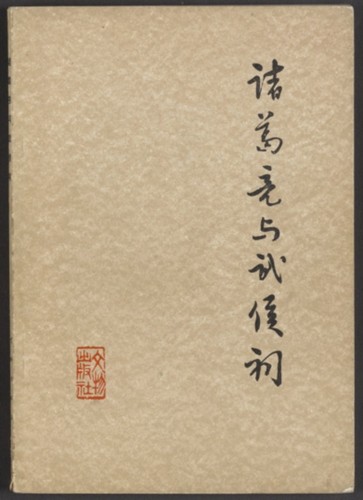 诸葛亮与武侯祠
文物出版社